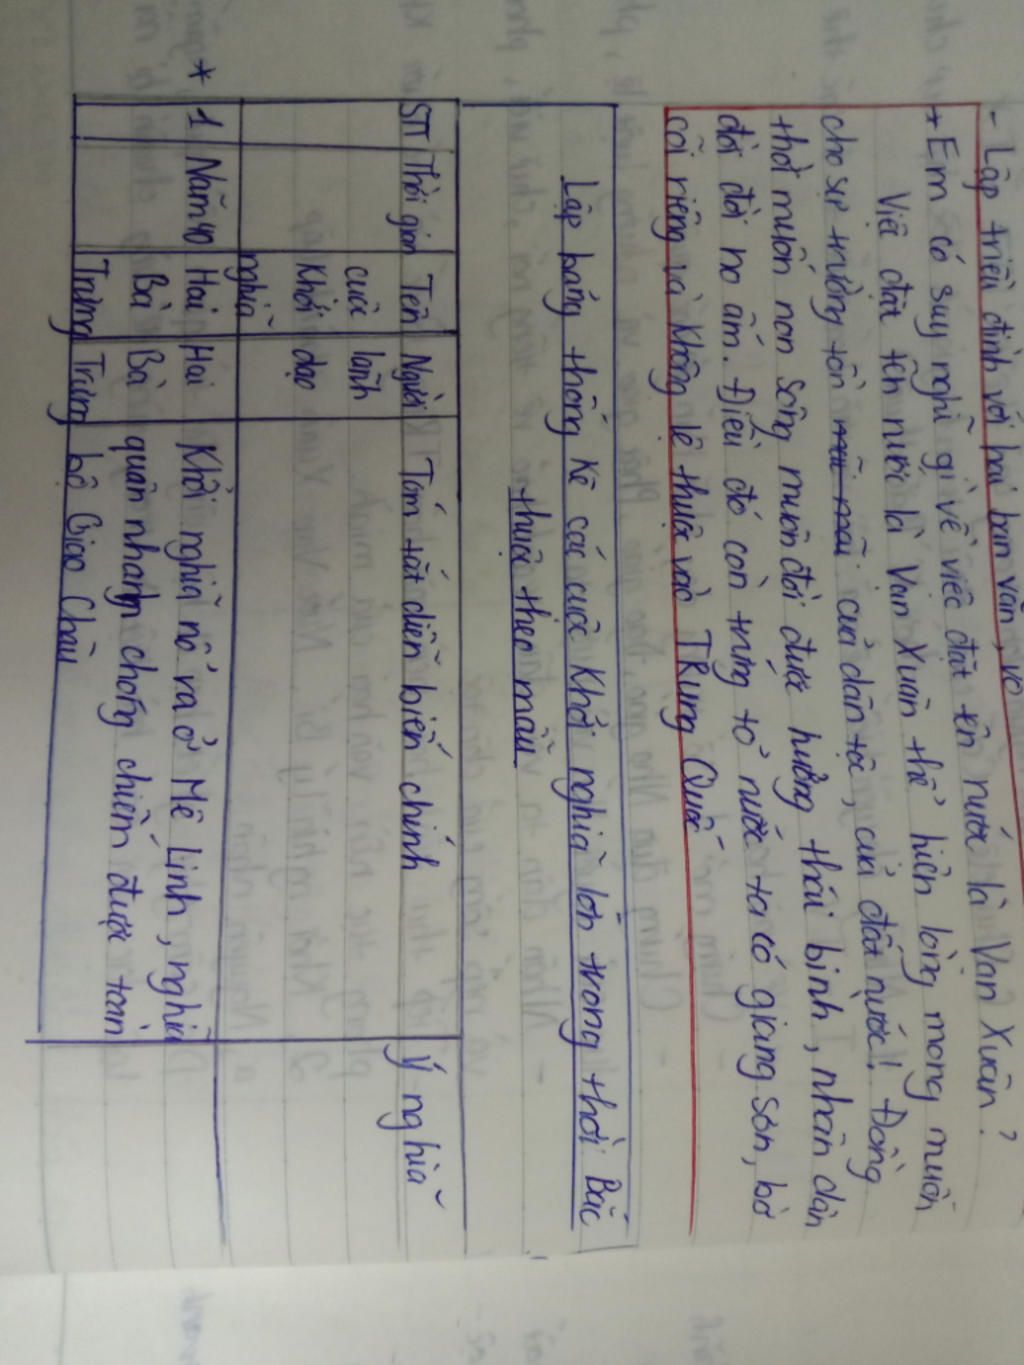 - Lập triều đình với hai ban văn, võ
+ Em có suy nghĩ gì về việc đặt tên nước là Vạn Xuân?
Việc đặt tên nước là Vạn Xuân thể hiện lòng mong muốn
cho sự trường tồn của dân tộc, của đất nước! Đồng
thời muốn non sông muôn đời được hưởng thái bình, nhân dân
đời đời no ấm. Điều đó còn trứng tỏ nước ta có giang sơn, bờ
cõi riêng và không lệ thuộc vào TRung Quốc
Lập bảng thống kê các cuộc khởi nghĩa lớn trong thời Bắc
thuộc theo mẫu
STT Thời gian Tên Người Tóm tắt diễn biến chính Ý nghĩa
cuộc lãnh
khởi đạo
nghĩa
* 1 Năm 40 Hai Hai Khởi nghĩa nổ ra ở Mê Linh, nghĩa
Bà Bà quân nhanh chóng chiếm được toàn
Trưng Trưng bộ Giao Châu